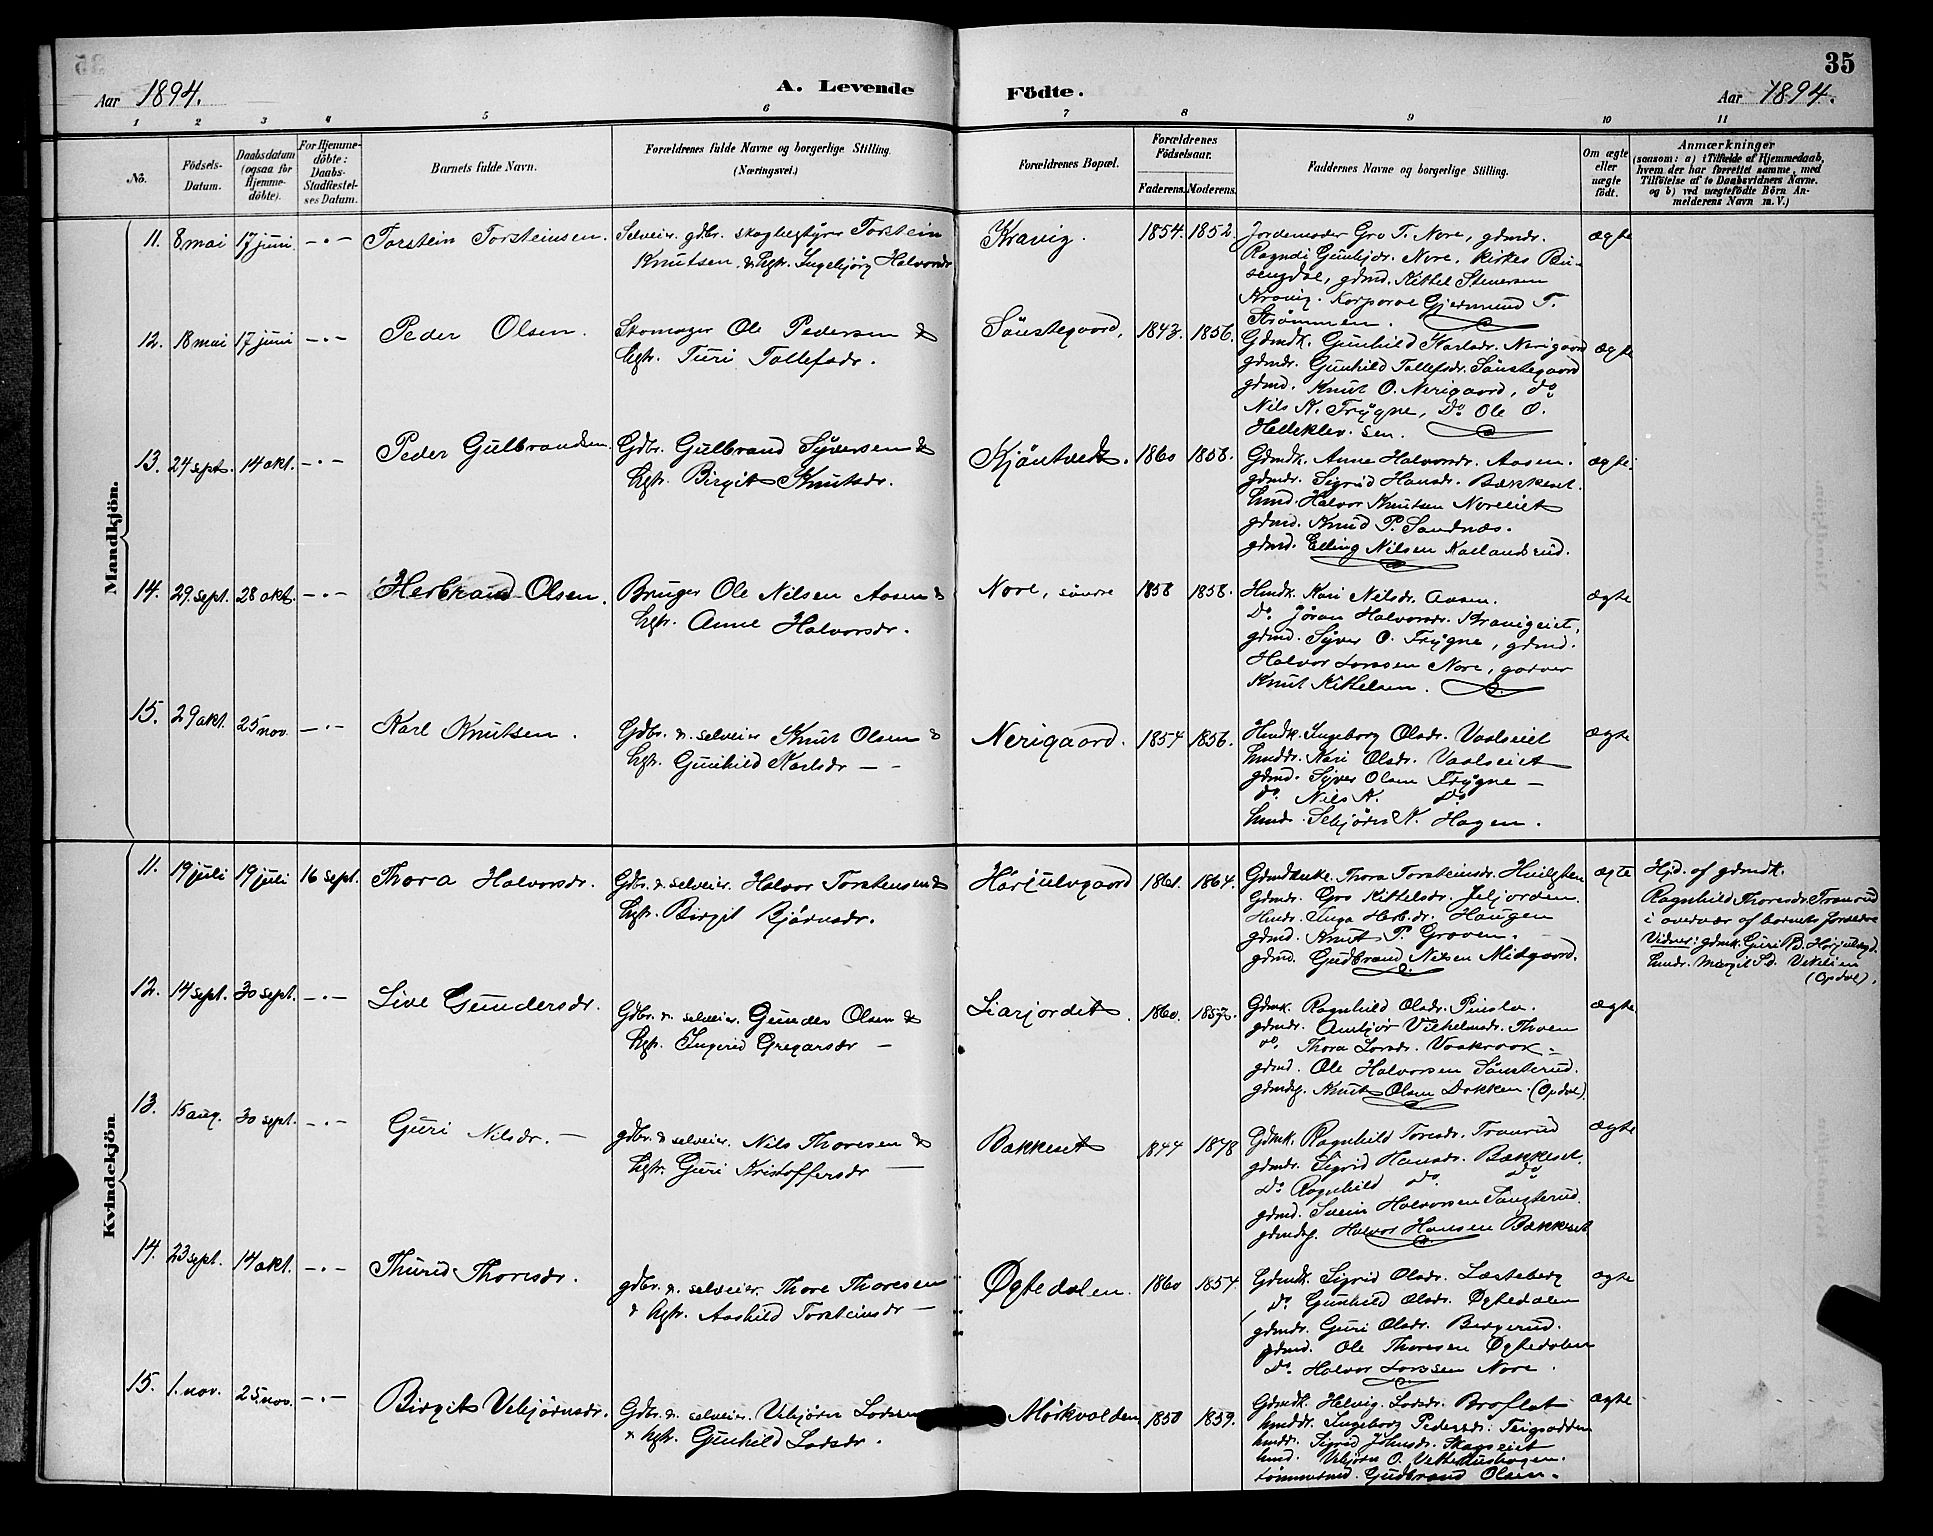 35
Aar 1894. A. Levende Födte. Aar 1894.
1 2 3 4 5 6 7 8 9 10 11
No.
Födsels-Datum.
Daabsdatum (ogsaa for Hjemme-döbte).
For Hjemme-döbte: Daabs-Stadfæstel-ses Datum.
Barnets fulde Navn.
Forældrenes fulde Navne og borgerlige Stilling.
(Næringsvei.)
Forældrenes Bopæl.
Forældrenes Födselsaar.
Faderens. Moderens.
Faddernes Navne og borgerlige Stilling.
Om ægte eller uægte födt.
Anmærkninger
(saasom: a) i Tilfælde af Hjemmedaab,
hvem der har forrettet samme, med
Tilföielse af to Daabsvidners Navne.
og b) ved uægtefödte Börn An-
melderens Navn m. V.)
Mandkjön.
11. 8 mai 17 juni -"- Torstein Torsteinsen.
Selveier, gdbr. skogbestyrer Torstein
Knutsen & hstr. Ingebjørg Halvorsdr
Kravig. 1854. 1852.
Jordemoder Gro T. Nore, gdmdr.
Ragndi Gunbjdr. Nore, kirkes
gdmd. Kittel Stenersen
Kravig. Korporal Gjermund T.
Strømmen.
ægte
12. 18 mai 17 juni -"- Peder Olsen.
Skomager Ole Pedersen &
hstr. Turi Tollefsdr.
Sönstegaard, 1843. 1856.
Gdmdk. Gunhild Karlsdr. Nerigaard
gdmdr. Gunhild Tollefsdr. Sönstegaard
gdmd. Knut O. Nerigaard, do
Nils K. Frygne, Do Ole O.
Helleklev. sen.
ægte
13. 24 sept. 14 okt. -"- Peder Gulbrandsen
Gdbr. Gulbrand Syversen &
hstr. Birgit Knutsdr.
Kjöntvedt. 1860 1858.
Gdmdk. Anne Halvorsdr. Aasen.
gdmdr. Sigrid Hansdr. Bækkeset.
hmd. Halvor Knutsen Noreeiet
gdmd. Knud P. Sandnæs.
gdmd. Elling Nilsen Kaalandsrud.
ægte
14. 29. sept. 28 okt. -"- Herbrand Olsen.
Bruger Ole Nilsen Aasen &
hstr. Anne Halvorsdr.
Nore, søndre 1858 1858.
Hmdk. Kari Nilsdr. Aasen.
Do Jøran Halvorsdr. Kravigeiet,
gdmd. Syver O. Frygne, gdmd.
Halvor Larssen Nore, garver
Knut Kittelsen.
ægte
15. 29 okt. 25 nov. -"- Karl Knutsen.
Gdbr. & selveier Knut Olsen &
hstr. Gunhild Karlsdr - -
Nerigaard. 1854 1856.
Hmdk. Ingeborg Olsdr. Vaalseiet
hmddr. Kari Olsdr. Vaalseiet
gdmd. Syver Olsen Frygne -
do Nils K. Do
hmdr. Sebjörn N. Hagen.
ægte
Kvindekjön
11. 19 juli 19 juli 16 sept. Thora Halvorsdr.
Gdbr. & selveier. Halvor Torstensen &
hstr. Birgit Bjørnsdr.
Hørjulvgaard 1861. 1864.
Gdmdenke. Thora Torsteinsdr.
Gdmdr. Gro Kittelsdr.
Hmdr. Inga Herb.dr. Haugen
gdmd. Knut P. Groven.
gdmd. Gudbrand Nilsen Midgaard.
ægte
Hjd. af gdmdk.
Ragnhild Thoresdr. Traurud
i overvær af barnets forældre
Vidner: gdmk. Guri B. Hørjulvgd.
hmdr. Margit Sd.
(Opdal).
12. 14 sept. 30 sept. -"- Live Gundersdr.
Gdbr. & selveier. Gunder Olsen &
hstr. Ingerid Gregarsdr -
Liarjordet. 1860. 1857.
Gdmk. Ragnhild Olsdr.
gdmdr. Ambjør Vilhelmsdr. Thoen
do Thora Larsdr.
gdmd. Ole Halvorsen Sønsterud.
gdmdsg. Knut Olsen Dokken. (Opdal).
ægte
13. 15 aug. 30 sept. -"- Guri Nilsdr. -
gdbr. & selveier. Nils Thoresen &
hstr. Guri Kristoffersdr -
Bakkeset 1844 1848
Gdmk. Ragnhild Toresdr. Traurud
gdmdr. Sigrid Hansdr. Bækkeset.
Do Ragnhild do. Do
gdmd. Svein Halvorsen
gdmdsg. Halvor Hansen Bækkeset
ægte
14. 23 sept. 14 okt. -"- Thurid Thoresdr.
gdbr. & selveier. Thore Thoresen
& hstr. Aashild Torsteinsdr -
Øgtedalen. 1860 1854.
Gdmdk. Sigrid Olsdr. Læsteberg
Do Gunhild Olsdr. Øgtedalen
gdmdr. Guri Olsdr. Bergerud.
gdmd. Ole Thoresen Øgtedalen
Do Halvor Larssen Nore.
ægte
15. 1. nov. 25. nov. -"- Birgit Vebjørnsdr.
Gdbr. & selveier. Vebjørn Larssen
& hstr. Gunhild Larsdr.
Mørkvolden 1850 1859.
Gdmdk. Helvig Larsdr. Broflat
hmddr. Ingeborg Pedersdr.
hmddr. Sigrid Johnsdr. Skagseiet
hmd. Vebjørn O.
tømmermd. Gudbrand Olsen.
ægte